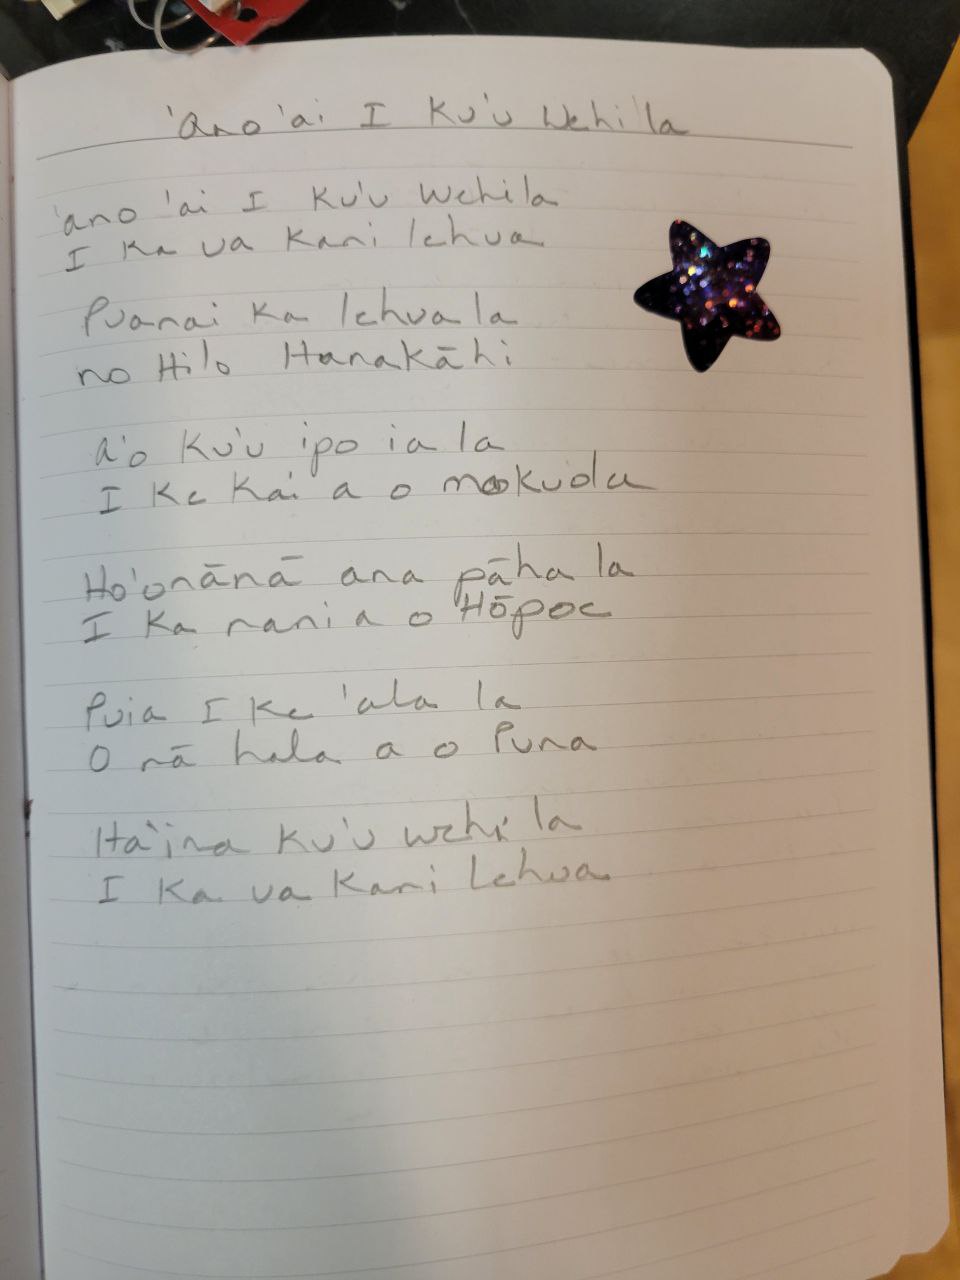 'Ano 'ai I Ku'u Wehi la
'ano 'ai I Ku'u Wehi la
I Ka ua Kani lehua
Puanai Ka lehua la
no Hilo Hanakāhi
A'o Ku'u ipo ia la
I Ke Kai a o mokuola
Ho'onānā ana pāha la
I Ka nani a o Hōpoe
Puia I Ke 'ala la
O nā hala a o Puna
Ha'ina Ku'u wehi la
I Ka ua Kani Lehua